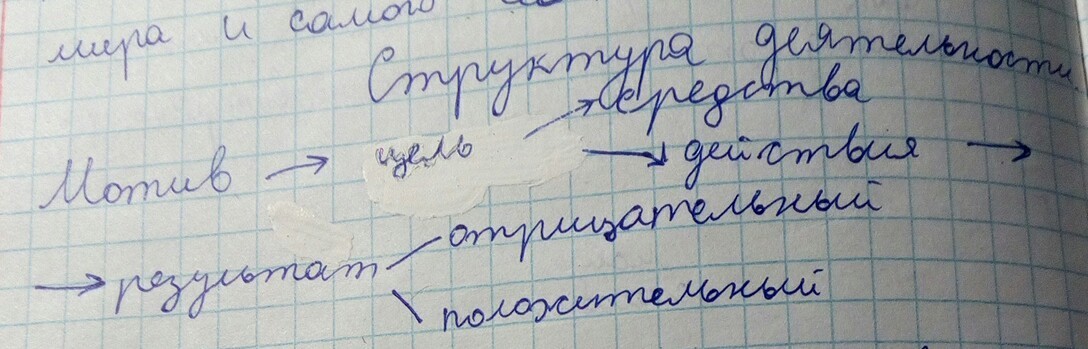 мира и самого
Структура деятельности
средства
Мотив → цель → действия →
→ результат отрицательный
положительный